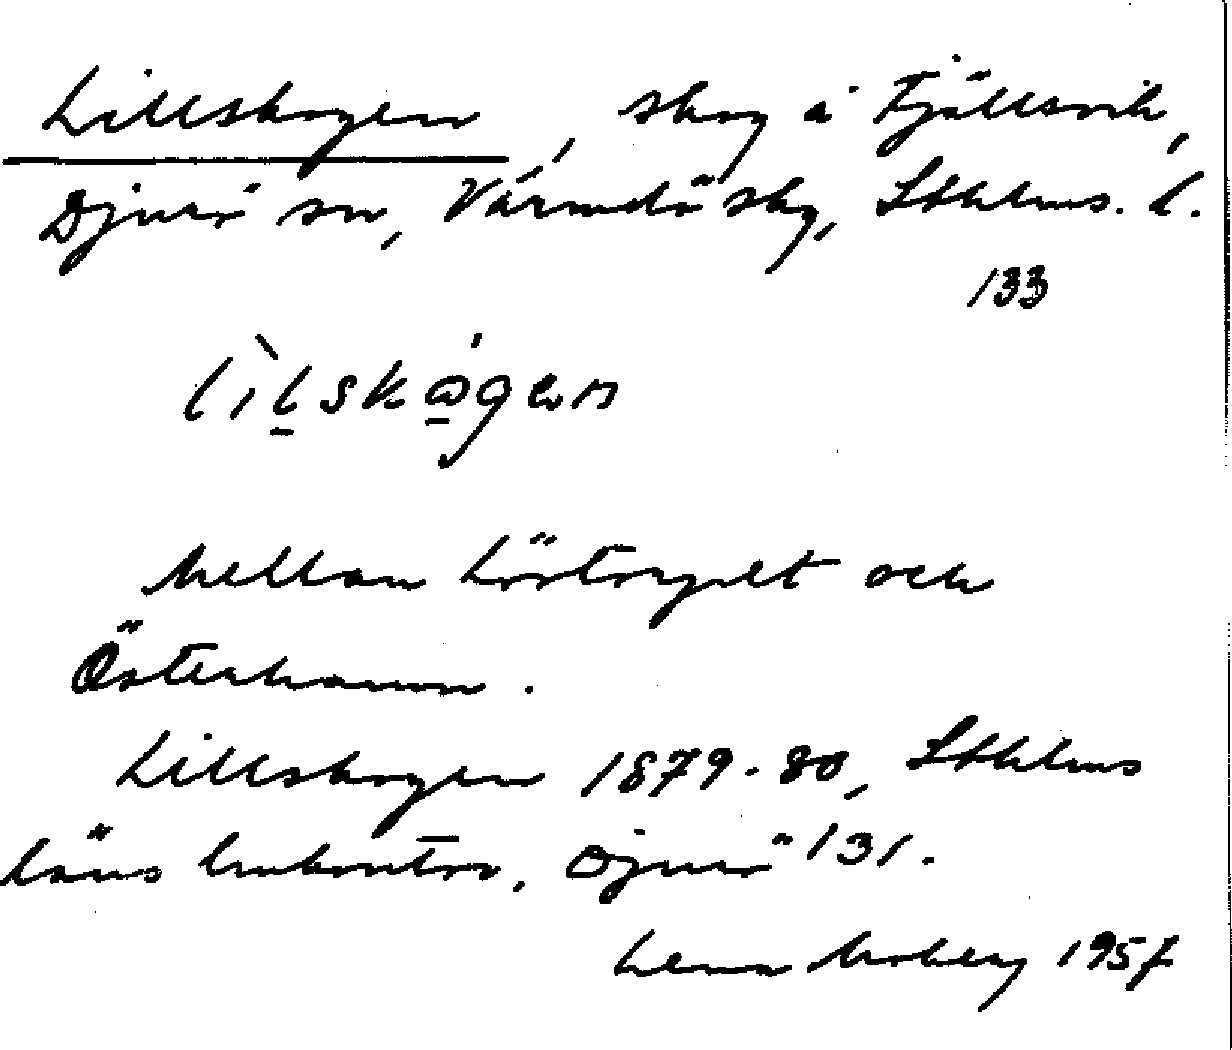 Lillskogen, skog å Fjällsvik,
Djurö sn, Värmdö skg, Sthlms. l.
133
lìlskågen
Mellan Lövtorpet och
Österhamn.
Lillskogen 1879-80, Sthlms
läns lmkontor, Djurö 131.
Lena Moberg 1957